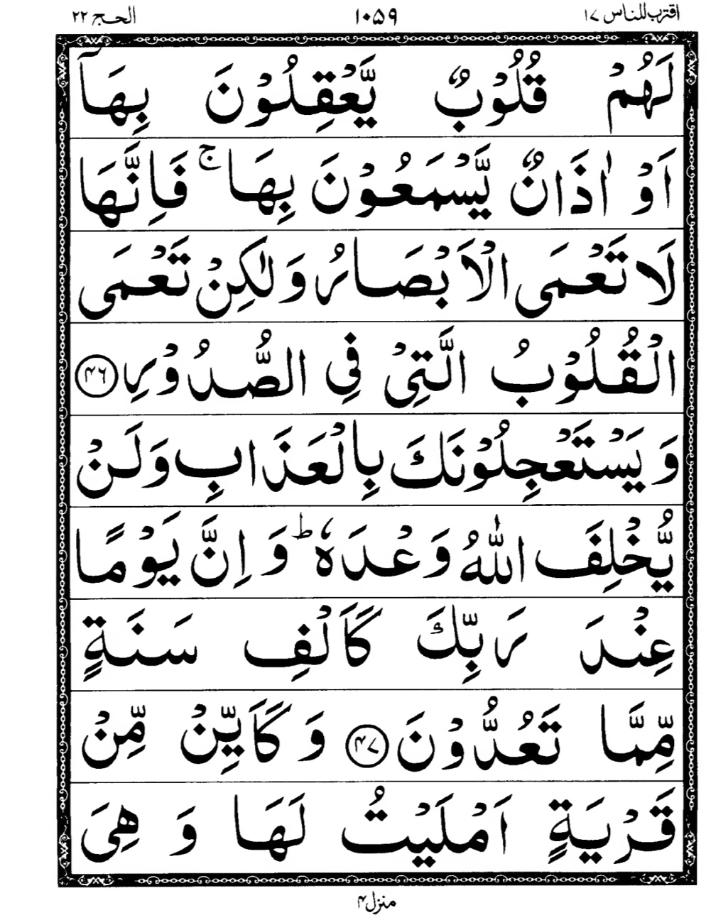 اقترب للناس ۱۷ ۱۰۵۹ الحج ۲۲
لَهُمْ قُلُوْبٌ يَّعْقِلُوْنَ بِهَآ
اَوْ اٰذَانٌ يَّسْمَعُوْنَ بِهَا ۚ فَاِنَّهَا
لَا تَعْمَى الْاَبْصَارُ وَلٰكِنْ تَعْمَى
الْقُلُوْبُ الَّتِيْ فِي الصُّدُوْرِ ۴۶
وَيَسْتَعْجِلُوْنَكَ بِالْعَذَابِ وَلَنْ
يُّخْلِفَ اللّٰهُ وَعْدَهٗ ؕ وَاِنَّ يَوْمًا
عِنْدَ رَبِّكَ كَاَلْفِ سَنَةٍ
مِّمَّا تَعُدُّوْنَ ۴۷ وَكَاَيِّنْ مِّنْ
قَرْيَةٍ اَمْلَيْتُ لَهَا وَ هِيَ
منزل ۴